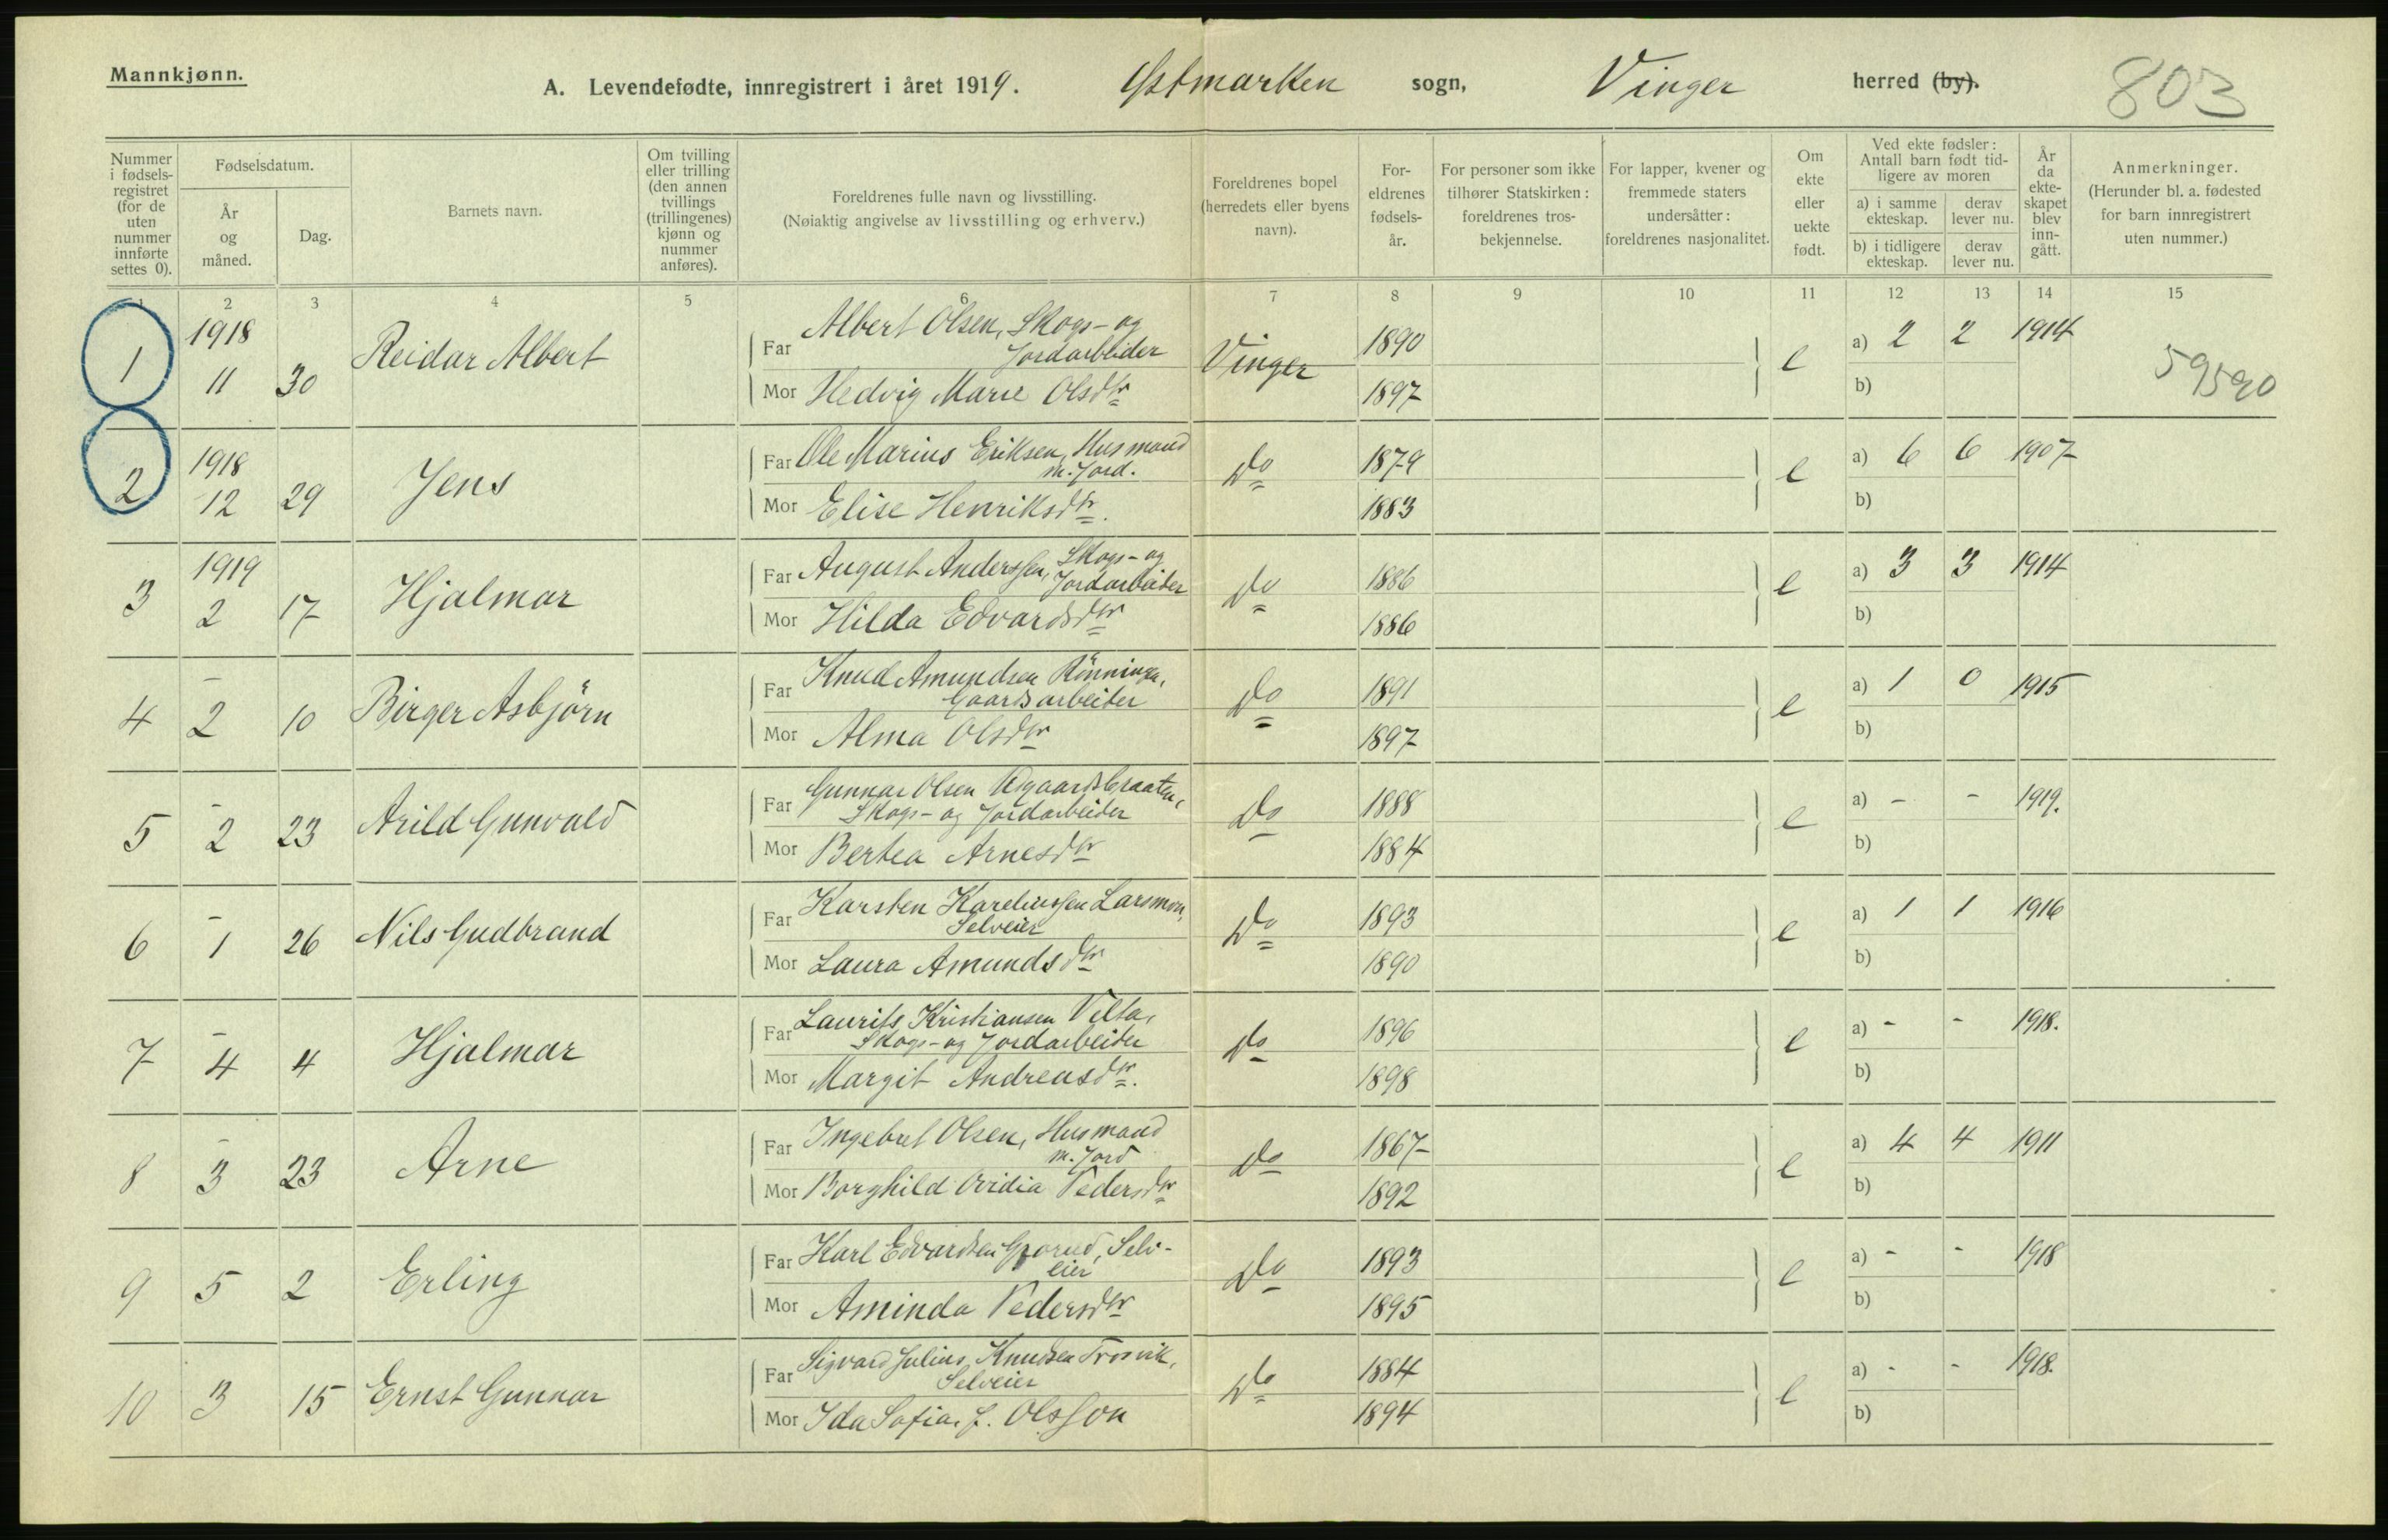 Mannkjønn.
A. Levendefødte, innregistrert i året 1919. Østmarken sogn, Vinger herred (by). 803
Nummer i fødsels-registret (for de uten nummer innførte settes 0).
Fødselsdatum.
År og måned.
Dag.
Barnets navn.
Om tvilling eller trilling (den annen tvillings (trillingenes) kjønn og nummer anføres).
Foreldrenes fulle navn og livsstilling.
(Nøiaktig angivelse av livsstilling og erhverv.)
Foreldrenes bopel (herredets eller byens navn).
For-eldrenes fødsels-år.
For personer som ikke tilhører Statskirken: foreldrenes tros-bekjennelse.
For lapper, kvener og fremmede staters undersåtter: foreldrenes nasjonalitet.
Om ekte eller uekte født.
Ved ekte fødsler: Antall barn født tid-ligere av moren
a) i samme ekteskap.
derav lever nu.
b) i tidligere ekteskap.
derav lever nu.
År da ekte-skapet blev inn-gått.
Anmerkninger.
(Herunder bl. a. fødested for barn innregistrert uten nummer.)
1 2 3 4 5 6 7 8 9 10 11 12 13 14 15
1 1918 11 30 Reidar Albert
Far Albert Olsen, Skogs- og Jordarbeider
Mor Hedvig Marie Olsdtr
Vinger 1890 1897 e a) 2 2 1914 b) 59590
2 1918 12 29 Jens
Far Ole Marius Eriksen, Husmand m. Jord.
Mor Elise Henriksdtr.
Do 1879 1883 e a) 6 6 1907 b)
3 1919 2 17 Hjalmar
Far August Anderssen, Skogs- og Jordarbeider
Mor Hilda Edvardsdtr
Do 1886 1886 e a) 3 3 1914 b)
4 - 2 10 Birger Asbjörn
Far Knud Amundsen Rönningen, Gaardsarbeider
Mor Alma Olsdtr
Do 1891 1897 e a) 1 0 1915 b)
5 - 2 23 Arild Gunvald
Far Gunnar Olsen Skogs- og Jordarbeider
Mor Bertea Arnesdtr
Do 1888 1884 e a) - - 1919. b)
6 - 1 26 Nils Gudbrand
Far Karsten Kareliussen Larsmon, Selveier
Mor Laura Amundsdtr
Do 1893 1890 e a) 1 1 1916 b)
7 - 4 4 Hjalmar
Far Laurits Kristiansen Velta, Skogs- og Jordarbeider
Mor Margit Andreasdtr.
Do 1896 1898 e a) - - 1918. b)
8 - 3 23 Arne
Far Ingebret Olsen, Husmand m. Jord
Mor Borghild Ovidia Pedersdtr
Do 1867 1892 e a) 4 4 1911 b)
9 5 2 Erling
Far Karl Edvardsen Selv-eier
Mor Aminda Pedersdtr
Do 1893 1895 e a) - - 1918 b)
10 3 15 Ernst Gunnar
Far Sigvard Julius Knudsen Trosvik, Selveier
Mor Ida Sofia f. Olsson
Do 1884 1894 e a) - - 1918. b)